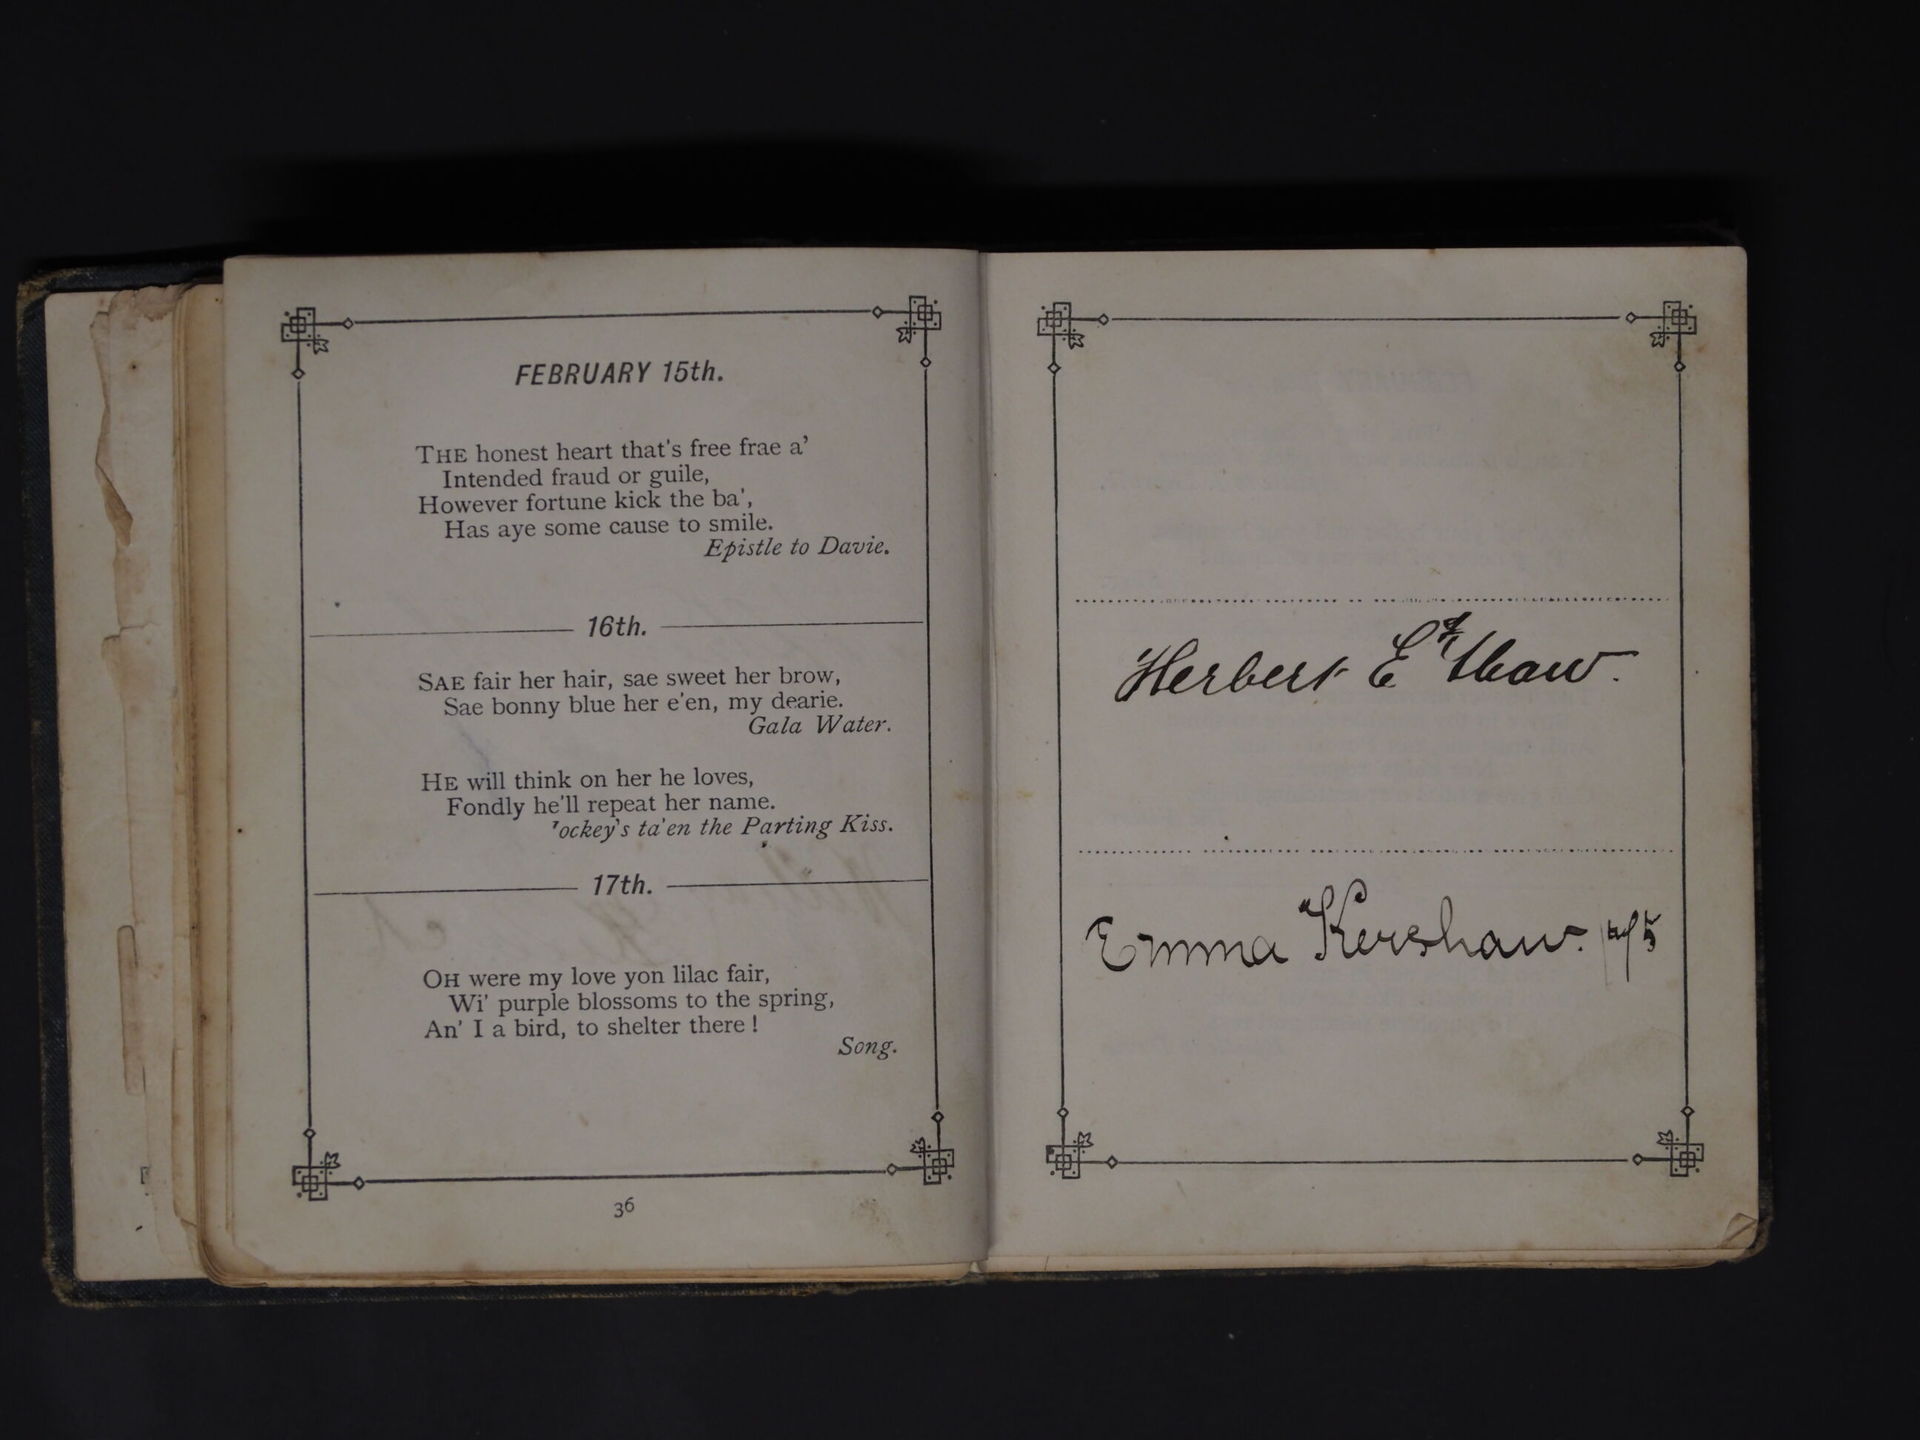 FEBRUARY 15th.
THE honest heart that's free frae a'
Intended fraud or guile,
However fortune kick the ba',
Has aye some cause to smile.
Epistle to Davie.
16th.
SAE fair her hair, sae sweet her brow,
Sae bonny blue her e'en, my dearie.
Gala Water.
HE will think on her he loves,
Fondly he'll repeat her name.
'ockey's ta'en the Parting Kiss.
17th.
OH were my love yon lilac fair,
Wi' purple blossoms to the spring,
An' I a bird, to shelter there!
Song.
36
Herbert E
Emma Kershaw.